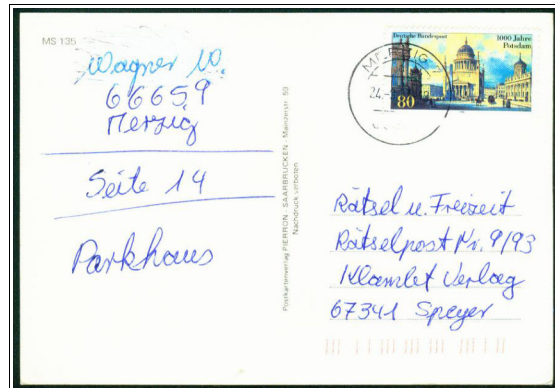 MS 135
Wagner W.
66659
Merzig
Seite 14
Parkhaus
Postkartenverlag PIERRON - SAARBRÜCKEN - Mainzerstr. 50
Nachdruck verboten
Deutsche Bundespost
1000 Jahre
Potsdam
80
MERZIG
24.
Rätsel u. Freizeit
Rätselpost Nr. 9/93
Klambt Verlag
67341 Speyer